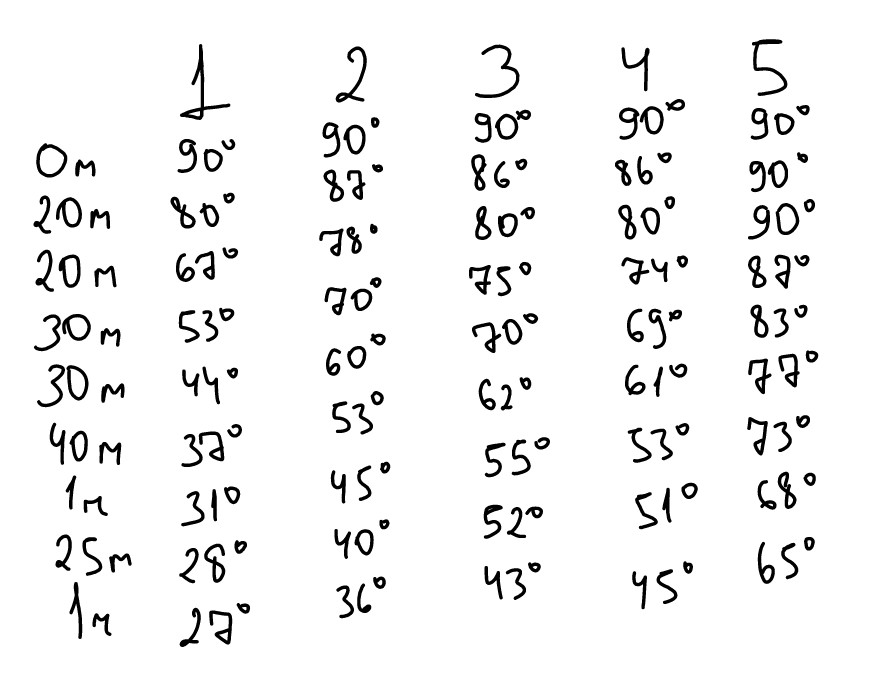 1 2 3 4 5
0м 90° 90° 90° 90° 90°
20м 80° 87° 86° 86° 90°
20м 67° 78° 80° 80° 90°
30м 53° 70° 75° 74° 87°
30м 44° 60° 70° 69° 83°
40м 37° 53° 62° 61° 77°
1м 31° 45° 55° 53° 73°
25м 28° 40° 52° 51° 68°
1м 27° 36° 43° 45° 65°